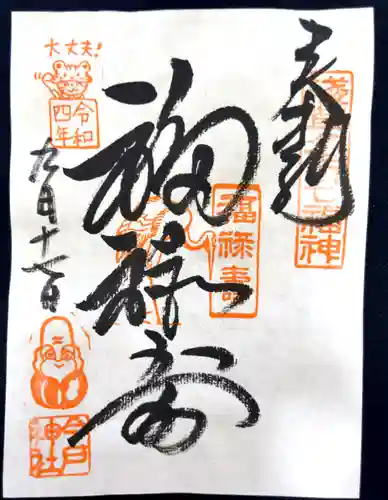 奉拝
浅草名所七福神
福禄寿
福禄寿
大丈夫!
令和
四年
九月十七日
今戸
神社